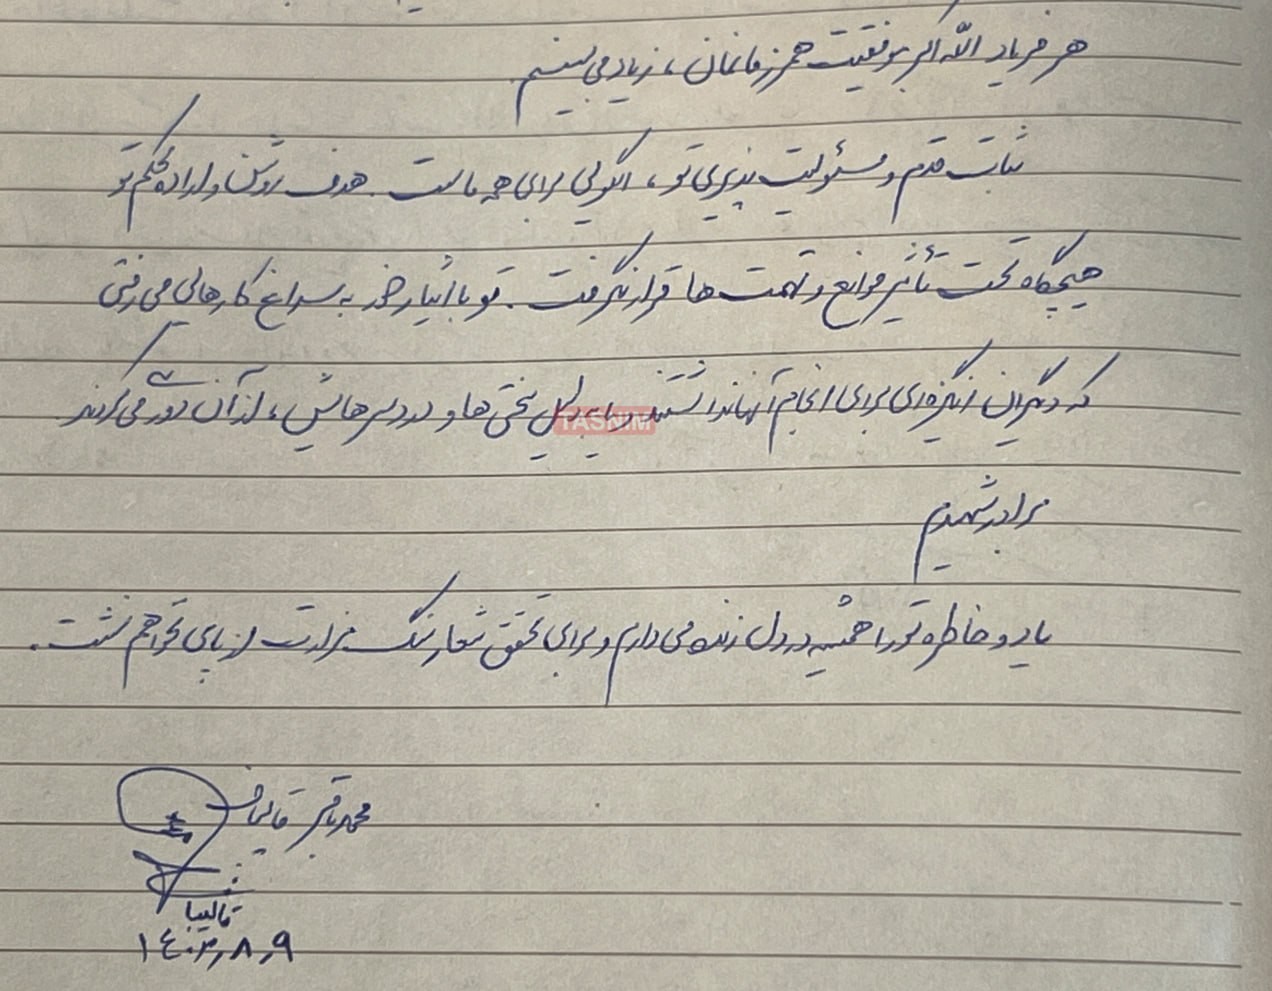 هر فریاد الله اکبر موفقیت همرزمانمان، زیاد می بینیم
ثبات قدم و مسئولیت پذیری تو، الگویی برای همه ماست. هدف روشن و اراده محکم تو
هیچگاه تحت تأثیر موانع و تهمت ها قرار نگرفت. تو با ایثار خود به سراغ کارهایی می رفتی
که دیگران انگیزه‌ای برای انجام آنها نداشتند و یا به دلیل سختی ها و دردسرهایش، از آن دوری می کردند
TASNIM
برادر شهیدم
یاد و خاطره تو را همیشه در دل زنده می دارم و برای تحقق شعار سنگ مزارت از پای نخواهم نشست.
محمدباقر قالیباف
قالیبا
۱۴۰۳٫۸٫۹